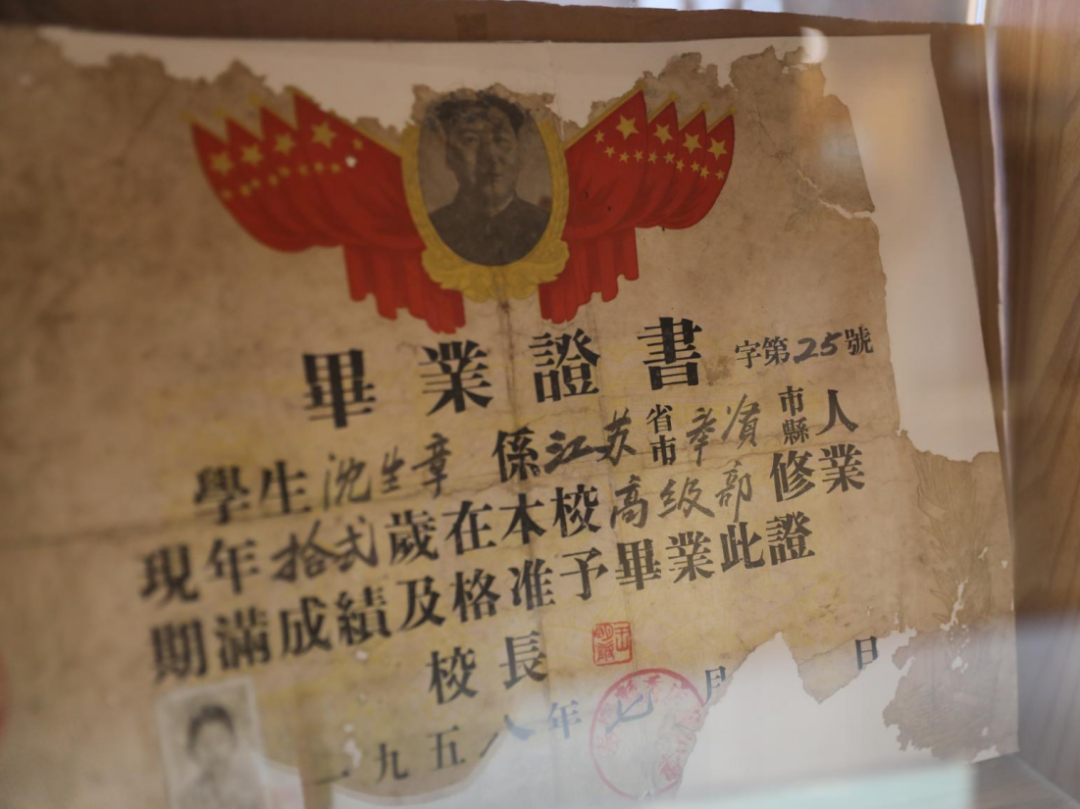 畢業證書 字第25號
學生沈生章係江苏省市奉贤市縣人
現年拾弍歲在本校高級部修業
期滿成績及格准予畢業此證
校長
一九五八年七月 日